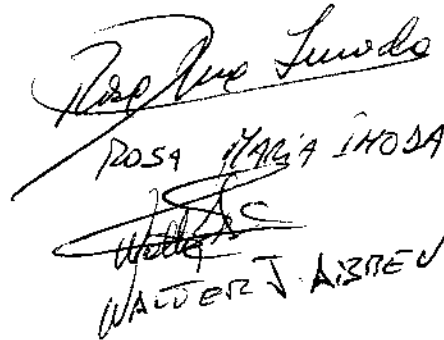 Rosa Ma Imoda
ROSA MARIA IMODA
WALTER J. ABREU